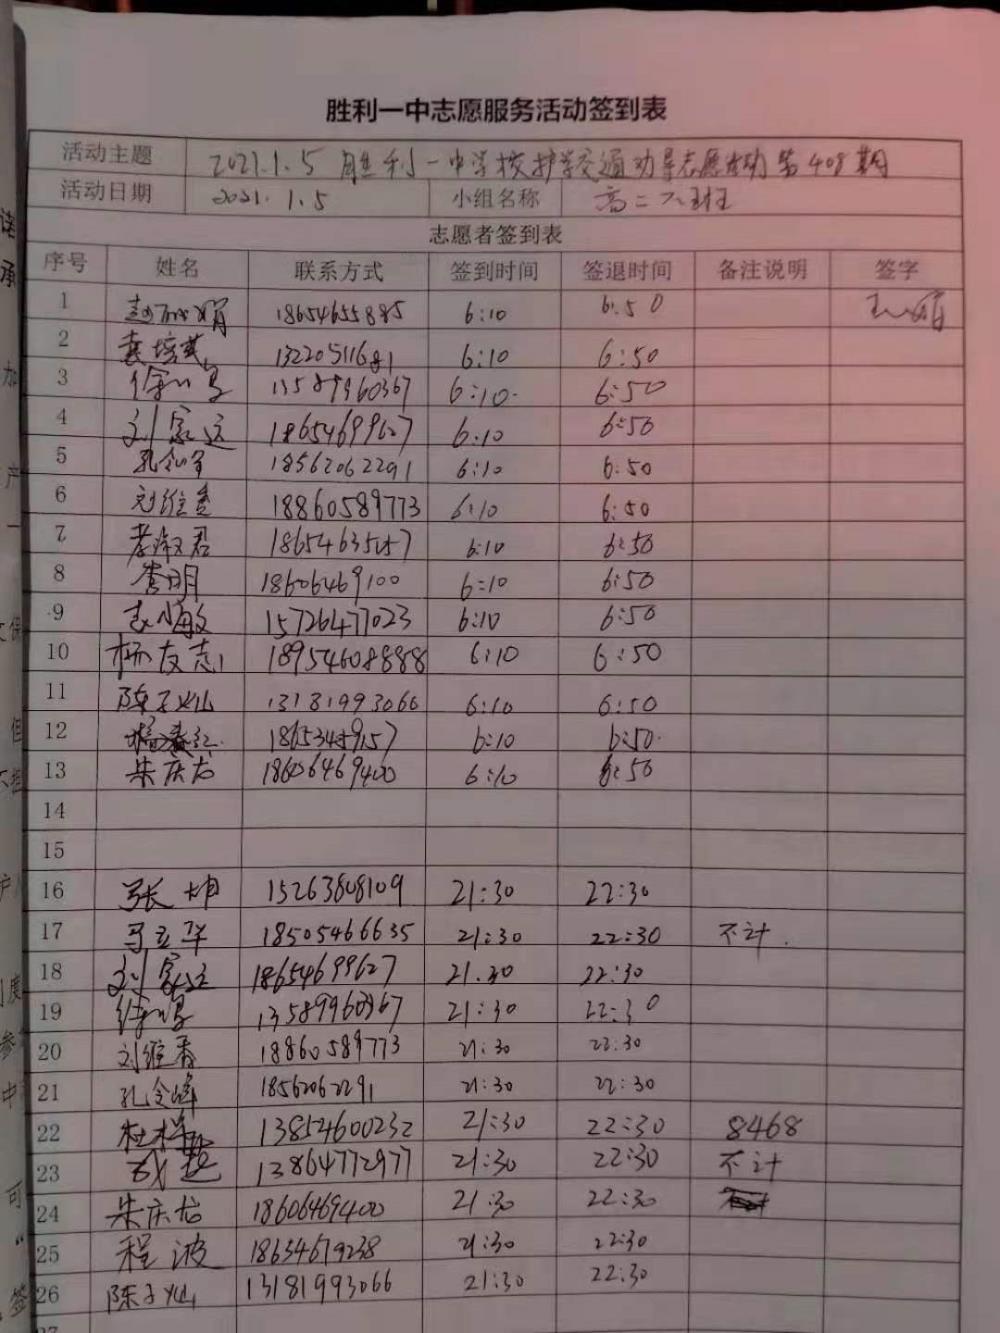 胜利一中志愿服务活动签到表
活动主题 2021.1.5 胜利一中学校护学交通劝导志愿活动第408期
活动日期 2021.1.5 小组名称 高二六班
志愿者签到表
序号 姓名 联系方式 签到时间 签退时间 备注说明 签字
1 18654655885 6:10 6:50
2 袁培英 13220511681 6:10 6:50
3 13589960367 6:10 6:50
4 刘家远 18654699627 6:10 6:50
5 孔令军 18562062291 6:10 6:50
6 刘维香 18860589773 6:10 6:50
7 李淑君 18654635157 6:10 6:50
8 李明 18606469100 6:10 6:50
9 袁小敏 15726477023 6:10 6:50
10 杨友志 18954608888 6:10 6:50
11 陈子灿 13181993066 6:10 6:50
12 18653459157 6:10 6:50
13 朱庆吉 18606469400 6:10 6:50
14
15
16 张坤 15263808109 21:30 22:30
17 马立军 18505466635 21:30 22:30 不计.
18 刘家远 18654699627 21:30 22:30
19 13589960367 21:30 22:30
20 刘维香 18860589773 21:30 22:30
21 孔令峰 18562062291 21:30 22:30
22 杜祥 13854600232 21:30 22:30 8468
23 13864772977 21:30 22:30 不计
24 朱庆吉 18606469400 21:30 22:30
25 程波 18654679238 21:30 22:30
26 陈子灿 13181993066 21:30 22:30